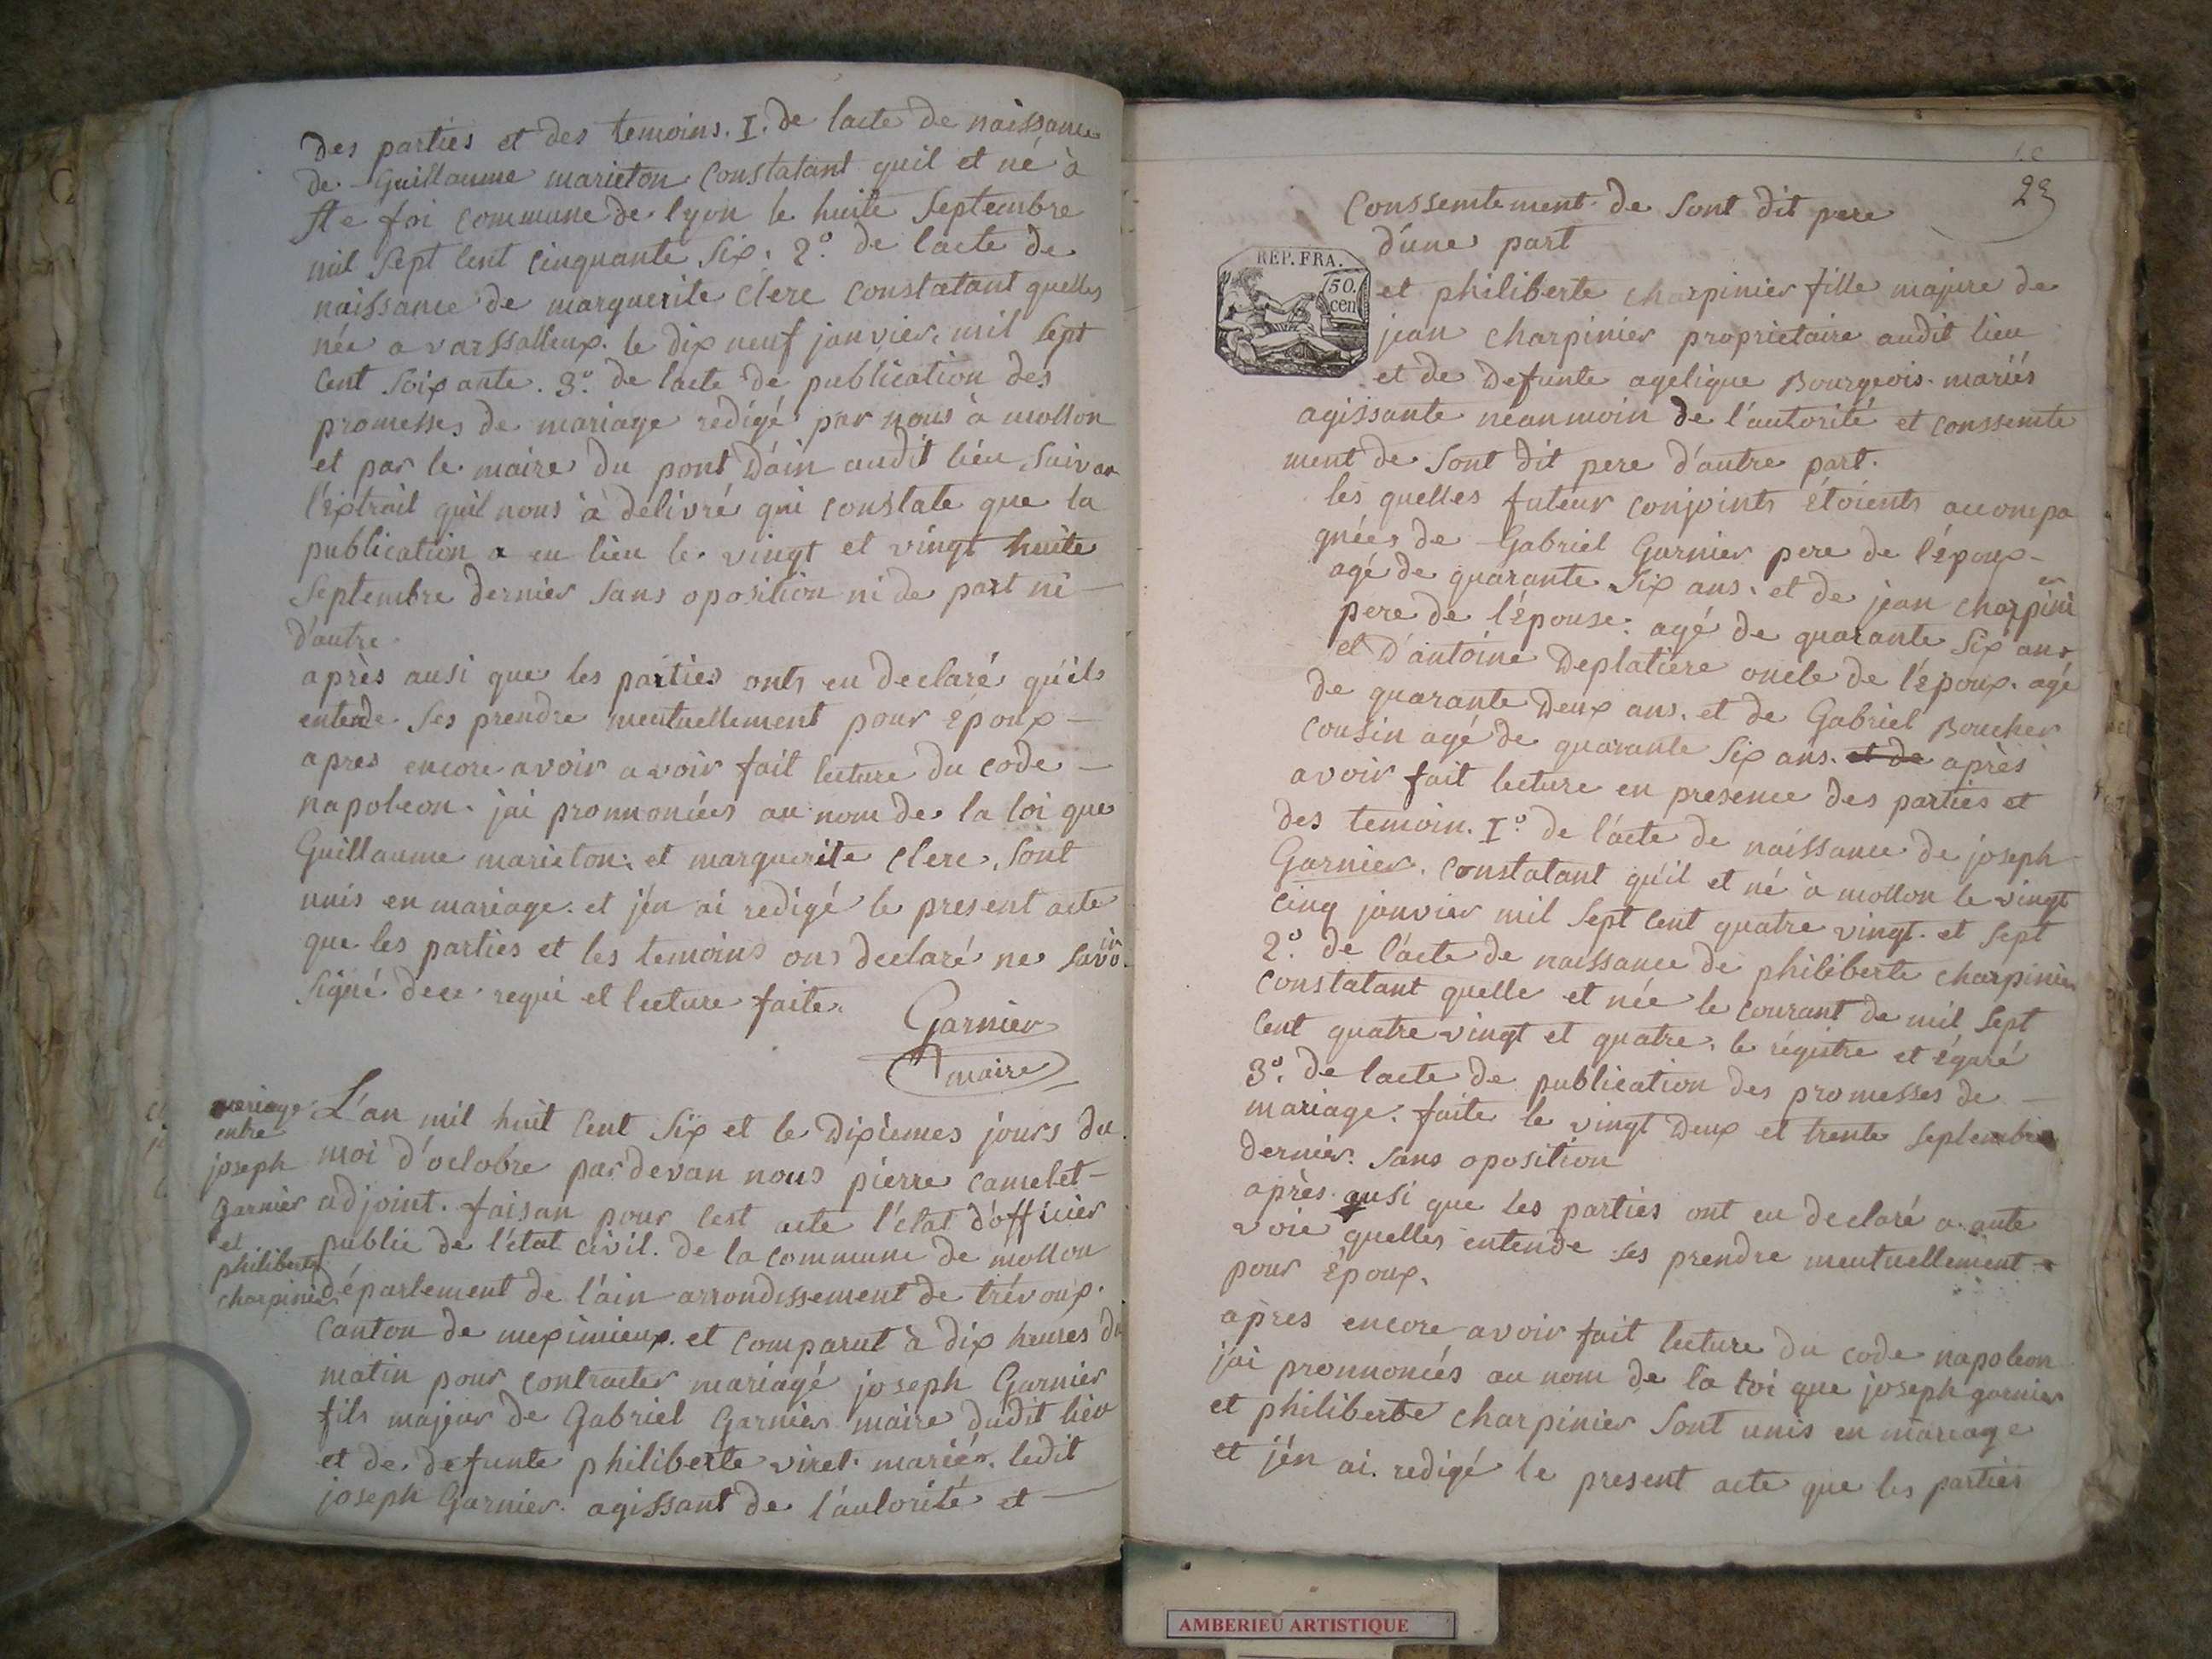 des parties et des temoins. I. de lacte de naissance
de Guillaume marieton constatant quil et né à
ste foi commune de lyon le huite Septembre
mil Sept Cent Cinquante Six. 2º. de lacte de
naissance de marguerite Clerc constatant quelles
née a varssalleux. le dix neuf janvier. mil Sept
Cent Soixante. 3º. de lacte de publication des
promesses de mariage redigé par nous à mollon
et par le maire du pont D'ain audit lieu Suivan
l'extrait quil nous à delivré qui constate que la
publication a eu lieu le vingt et vingt huite
Septembre dernier Sans oposition ni de part ni
d'autre.
après ausi que les parties onts eu declaré qu'ils
entende Ses prendre meutuellement pour Époux
apres encore avoir avoir fait lecture du code
napoleon. jai pronnoncées au nom de la loi que
Guillaume marieton. et marguerite Clerc. Sont
unis en mariage. et j'én ai redigé le present acte
que les parties et les temoins ons declaré ne Savoir
Signé dece requi et lecture faite.
Garnier
maire
mariage
entre
joseph
garnier
et
philiberte
charpinier
L'an mil huit Cent Six et le Dixiemes jours du
moi d'octobre par devan nous pierre Camelet
adjoint. faisan pour Cest acte l'état d'officier
public de l'état civil. de la commune de mollon
département de l'ain arrondissement de trévoux.
Canton de meximieux. et comparut à dix heures du
matin pour contracter mariagé joseph Garnier
fils majeur de Gabriel Garnier maire dudit lieu
et de defunte philiberte viret. mariés. ledit
joseph Garnier. agissant de l'autorité et
23
Conssentement de Sont dit pere
d'une part
REP. FRA.
50.
cen
et philiberte charpinier fille majure de
jean charpinier proprietaire audit lieu
et de Defunte agelique Bourgeois. mariés
agissante néanmoin de l'autorité et conssente
ment de Sont dit pere d'autre part.
les quelles futeur conjoints étoients acompa
gnées de Gabriel Garnier pere de l'époux
agé de quarante Six ans. et de jean charpinier
pere de l'épouse. agé de quarante Six ans
et D'antoine Deplatiere oncle de l'époux. agé
de quarante Deux ans. et de Gabriel Boucher
Cousin agé de quarante Six ans. et de après
avoir fait lecture en présence des parties et
des temoin. Iº. de l'acte de naissance de joseph
Garnier. Constatant qu'il et né à mollon le vingt
Cinq janvier mil Sept Cent quatre vingt et Sept
2º. de l'acte de naissance de philiberte charpinier
Constatant quelle et née le courant de mil Sept
Cent quatre vingt et quatre. le régistre et égaré
3º. de lacte de publication des promesses de
mariage. faite le vingt Deux et trente Septembre
dernier. Sans oposition
après ausi que les parties ont eu declaré a aute
voie quelles entende ses prendre meutuellement
pour Époux.
apres encore avoir fait lecture du code napoleon
j'ai pronnoncés au nom de la loi que joseph garnier
et philiberte charpinier Sont unis en mariage
et j'én ai redigé le present acte que les parties
AMBERIEU ARTISTIQUE